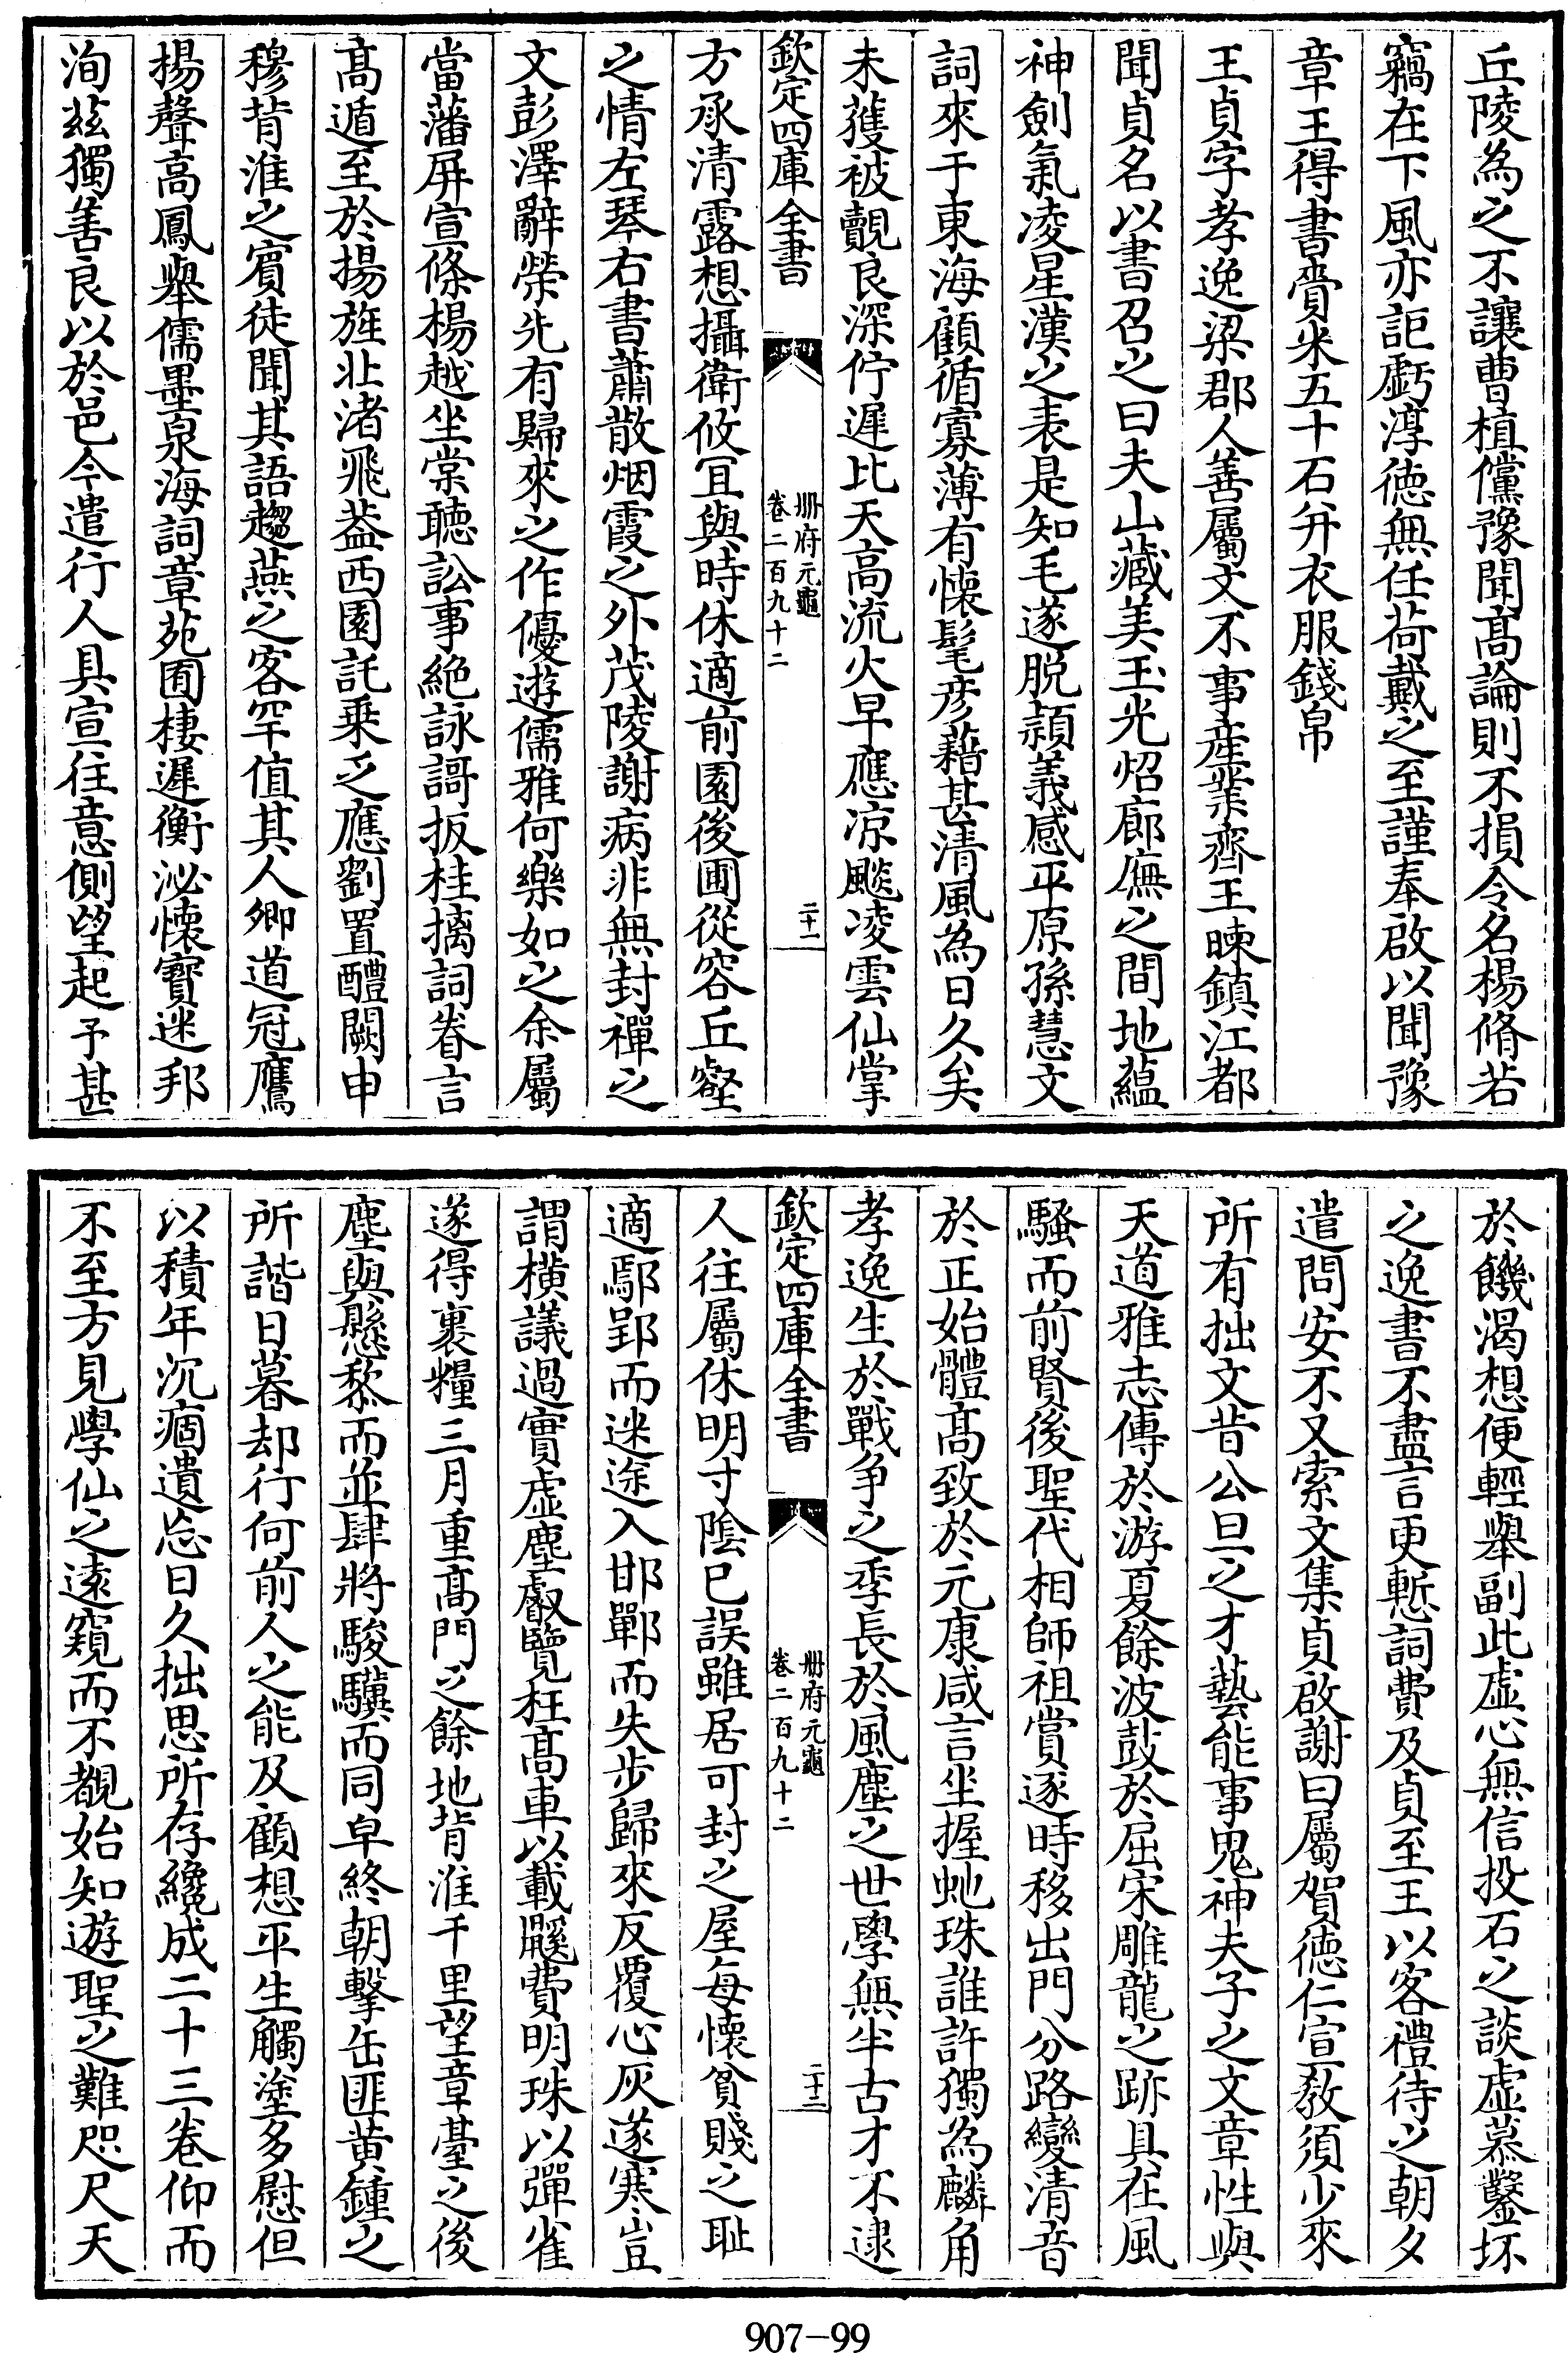 丘陵為之不讓曹植儻豫聞髙論則不損令名楊脩若
竊在下風亦詎虧淳徳無任荷戴之至謹奉啟以聞豫
章王得書賚米五十石并衣服錢帛
王貞字孝逸梁郡人善屬文不事産業齊王暕鎮江都
聞貞名以書召之曰夫山藏美玉光炤廊廡之間地藴
神劍氣凌星漢之表是知毛遂脱頴義感平原孫慧文
詞來于東海顧循寡薄有懐髦彦藉甚清風為日久矣
未獲被覿良深佇遲比天高流火早應凉飈凌雲仙掌
欽定四庫全書
冊府元龜
卷二百九十二
二十一
方承清露想攝衛攸宜與時休適前園後圃從容丘壑
之情左琴右書蕭散烟霞之外茂陵謝病非無封禪之
文彭澤辭榮先有歸來之作優遊儒雅何樂如之余屬
當藩屏宣條楊越坐棠聽訟事絶詠謌扳桂摛詞眷言
髙遁至於揚旌北渚飛葢西園託乗乏應劉置醴闕申
穆背淮之賔徒聞其語趨燕之客罕值其人卿道冠鷹
揚聲高鳳舉儒墨泉海詞章苑囿棲遲衡泌懐寳迷邦
洵兹獨善良以於邑今遣行人具宣往意側望起予甚
於饑渴想便輕舉副此虛心無信投石之談虛慕鑿坏
之逸書不盡言更慙詞費及貞至王以客禮待之朝夕
遣問安不又索文集貞啟謝曰屬賀徳仁宣敎須少來
所有拙文昔公旦之才藝能事鬼神夫子之文章性與
天道雅志傳於游夏餘波鼓於屈宋雕龍之跡具在風
騷而前賢後聖代相師祖賞逐時移出門分路變清音
於正始體髙致於元康咸言坐握虵珠誰許獨為麟角
孝逸生於戰争之季長於風塵之世學無半古才不逮
欽定四庫全書
冊府元龜
卷二百九十二
二十二
人往屬休明寸陰已誤雖居可封之屋每懐貧賤之恥
適鄢郢而迷途入邯鄲而失步歸來反覆心灰遂寒豈
謂横議過實虛塵叡覽枉髙車以載鼷費明珠以彈雀
遂得裹糧三月重髙門之餘地背淮千里望章臺之後
塵與懸黎而並肆將駿驥而同皁終朝擊缶匪黄鍾之
所諧日暮却行何前人之能及顧想平生觸塗多慰但
以積年沉痼遺忘日久拙思所存纔成二十三巻仰而
不至方見學仙之逺窺而不覩始知遊聖之難咫尺天
907-99